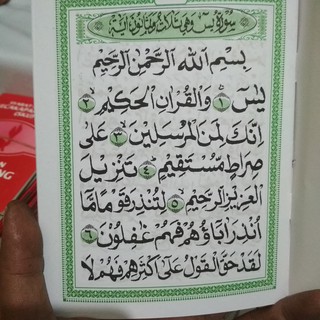 سورة يس وهي ثلاث وثمانون اية
بِسْمِ اللهِ الرَّحْمٰنِ الرَّحِيْمِ
يٰسۤ ۝١ وَالْقُرْاٰنِ الْحَكِيْمِ ۝٢
اِنَّكَ لَمِنَ الْمُرْسَلِيْنَ ۝٣ عَلٰى
صِرَاطٍ مُّسْتَقِيْمٍ ۝٤ تَنْزِيْلَ
الْعَزِيْزِ الرَّحِيْمِ ۝٥ لِتُنْذِرَ قَوْمًا مَّا
اُنْذِرَ اٰبَاؤُهُمْ فَهُمْ غٰفِلُوْنَ ۝٦
لَقَدْ حَقَّ الْقَوْلُ عَلٰى اَكْثَرِهِمْ فَهُمْ لَا